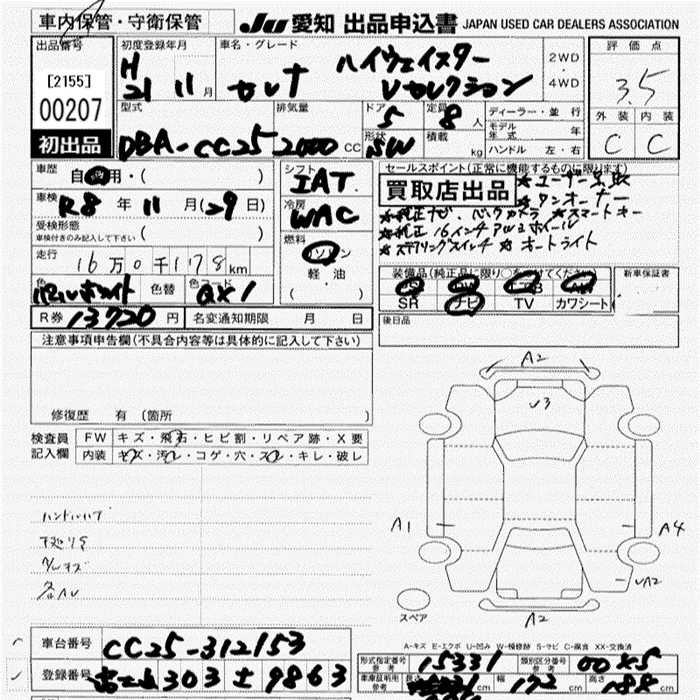 車内保管・守衛保管 JU 愛知 出品申込書 JAPAN USED CAR DEALERS ASSOCIATION
出品番号 初度登録年月 車名・グレード 2WD・4WD 評価点
[2155] H 21 11月 セレナ ハイウェイスター 3.5
00207 Vセレクション
型式 排気量 ドア 定員 ディーラー・並行 外装 内装
初出品 DBA-CC25 2000cc 5 8人 モデル年式 年 C C
形状 積載 ハンドル 左・右
SW kg
車歴 自家用・( ) シフト セールスポイント(正常に機能するものに限ります)
IAT 買取店出品 ★ユーザー買取
車検 R8年11月(29日) 冷房 ★ワンオーナー
WAC ★純正ナビ、バックカメラ ★スマートキー
受検形態 ★純正16インチアルミホイール
車検付きのみ記入して下さい ( ) 燃料 ★ステアリングスイッチ ★オートライト
走行 16万0千178km ガソリン
軽・油 装備品(純正品に限り○をつけてください) 新車保証書
色 パールホワイト 色替 色コード QX1 ( ) SR ナビ TV カワシート
R券 13720円 名変通知期限 月 日 後日品
注意事項申告欄(不具合内容等は具体的に記入して下さい)
A2
V3
修復歴 有 (箇所 )
検査員 FW キズ・飛石・ヒビ割・リペア跡・X要
記入欄 内装 キズ・汚レ・コゲ・穴・スレ・キレ・破レ
ハンドルハゲ
A1 A4
UA2
各AU
スペア A2
A-キズ E-エクボ U-凹み W-補修跡 S-サビ C-腐食 XX-交換済
車台番号 CC25-312153
形式指定番号 参考 15331 類別区分番号 参考
登録番号 303 9863
車庫証明用 参考 長さ cm 幅 172cm 高さ cm